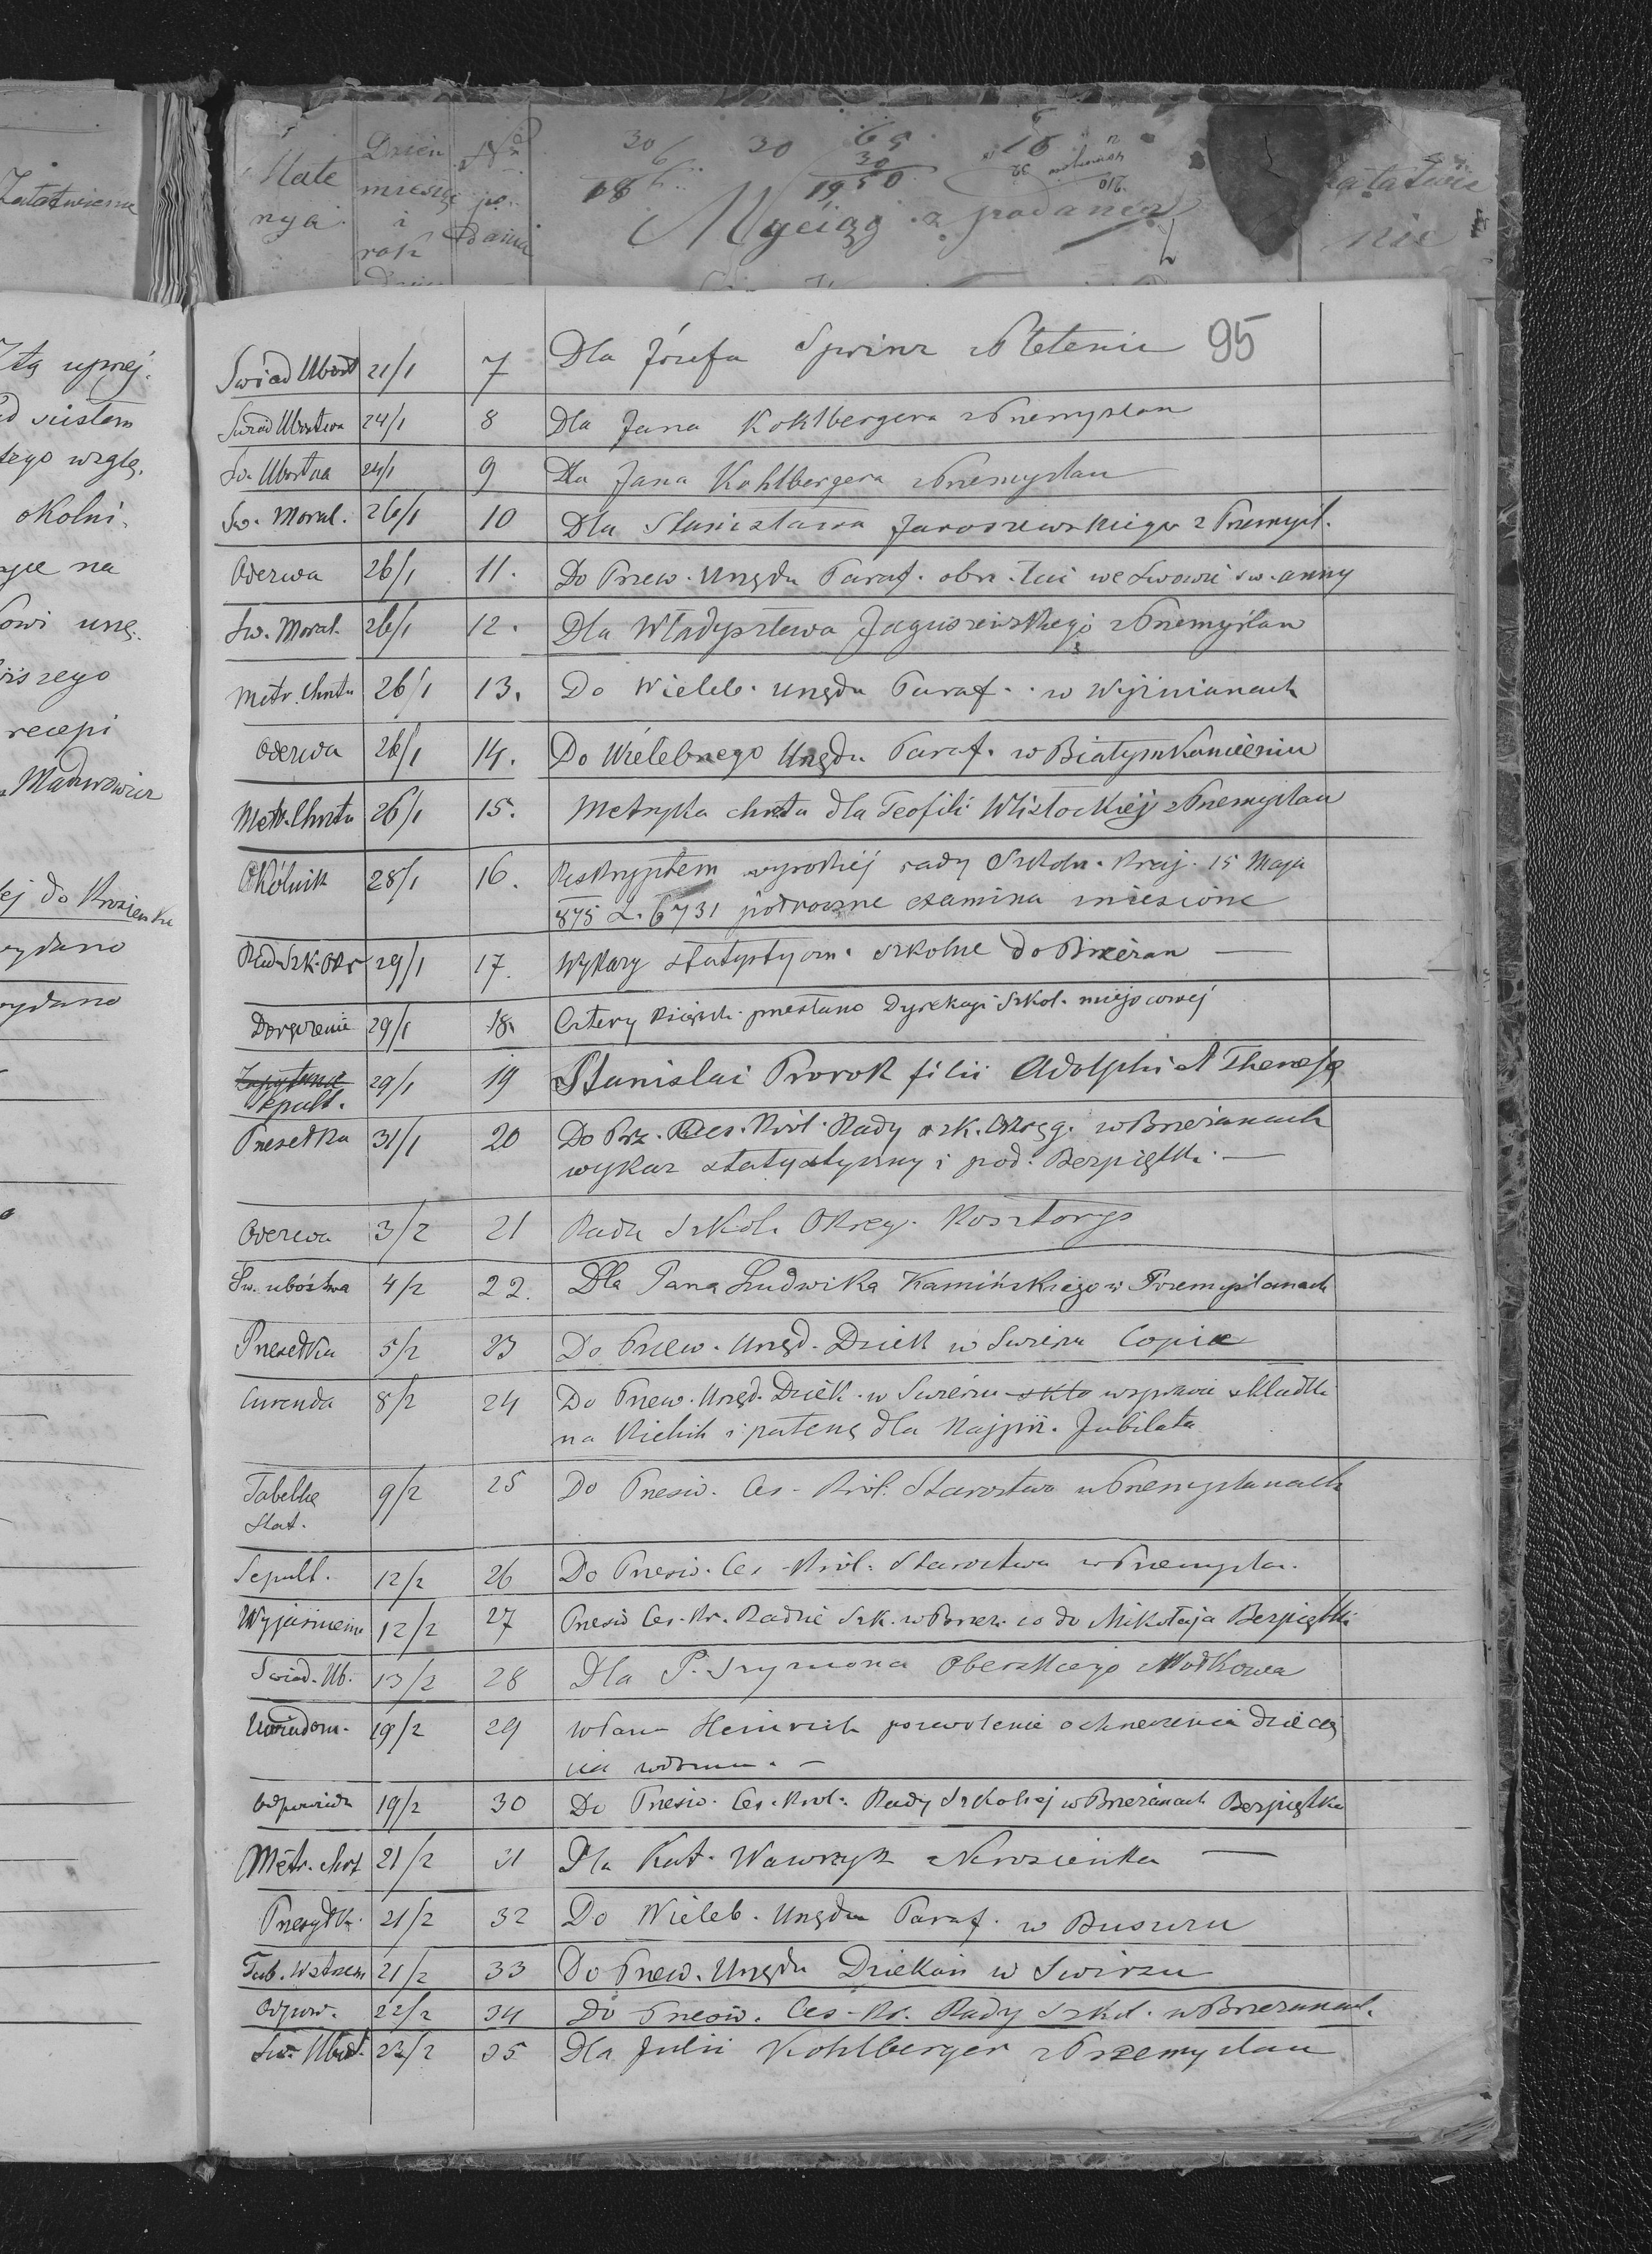 Zatatwienie
Mate
ryja
Dzień
miesiąc
i
rok
Nr
po-
dania
30
6
18 6
30
65
30
1950
16
32
210
Wyciąg z podania
atatwie
nie
95
Swiad Ubost 21/1 7 Dla Józefa
Swiad Ubostwa 24/1 8 Dla Jana Kohlbergera z Przemyslan
Sw. Ubostwa 24/1 9 Dla Jana Kohlbergera z Przemyslan
Sw. Moral. 26/1 10 Dla Stanisława Jaroszewskiego z Przemysl.
Odezwa 26/1 11. Do Przew. Urzędu Paraf. obrz. łać we Lwowie sw. anny
Sw. Moral. 26/1 12. Dla Władysława Jaguszewskiego z Przemyślan
Metr. Chrztu 26/1 13. Do Wieleb. urzędu Paraf. w Wyżnianach
Odezwa 26/1 14. Do Wielebnego Urzędu Paraf. w Białymkamieniu
Metr. Chrztu 26/1 15. Metryka chrztu dla Teofili Wisłockiéj z Przemyslan
Okólnik 28/1 16. Reskryptem wysokiéj rady Szkoln. Kraj. 15 Maja
875 L. 6731 półroczne examina zniesione
Rad. Szk. Okr 29/1 17. Wykazy statystyczn. szkolne do Brzeżan —
Doręczenie 29/1 18. Cztery książk. przesłano Dyrekcyi Szkol. miejscowéj
Sepult. 29/1 19 Stanislai Prorok filii Adolphi et Theresę
Przesełka 31/1 20 Do Prz. Ces. Król. Rady szk. Okręg. w Brzeżanach
wykaz statystyczny i pod. Bezpiętki. —
Odezwa 3/2 21 Radu Szkol. Okręg. Kosztorys
Św. ubóstwa 4/2 22. Dla Pana Ludwika Kamińskiego w Przemyślanach
Przesełka 5/2 23 Do Przew. Urzęd. Dziek w Swirżu Copia
Curenda 8/2 24 Do Przew. Urzęd. Dziek. w Swirżu w sprawie składki
na Kielich i patenę dla Najprz. Jubilata
Tabelkę
Stat. 9/2 25 Do Prześw. Ces. Król. Starostwa w Przemyslanach
Sepult. 12/2 26 Do Prześw. Ces. Król. Starostwa w Przemyslan.
Wyjaśnienie 12/2 27 Prześw Ces. Kr. Radzie Szk. w Brzeż. co do Mikołaja Bezpiętki
Swiad. Ub. 13/2 28 Dla P. Szymona
Uwiadom. 19/2 29 Heinrich pozwolenie ochrzczenia dziecię
na
Odpowiedź 19/2 30 Do Prześw. Ces. Krol. Rady Szkolnej w Brzeżanach Bezpiętka
Metr. chrz 21/2 31 Dla Kat. Wawrzyk z Krosienka —
Przesyłk. 21/2 32 Do Wieleb. Urzędu Paraf. w Buszczu
Tab. 21/2 33 Do Przew. Urzędu Dziekań w Swirżu
Odpow. 22/2 34 Do Prześw. Ces. Kr. Rady Szkol. w Brzeżanach.
Sw. Ubost. 22/2 35 Dla Julii Kohlberger z Przemyslan